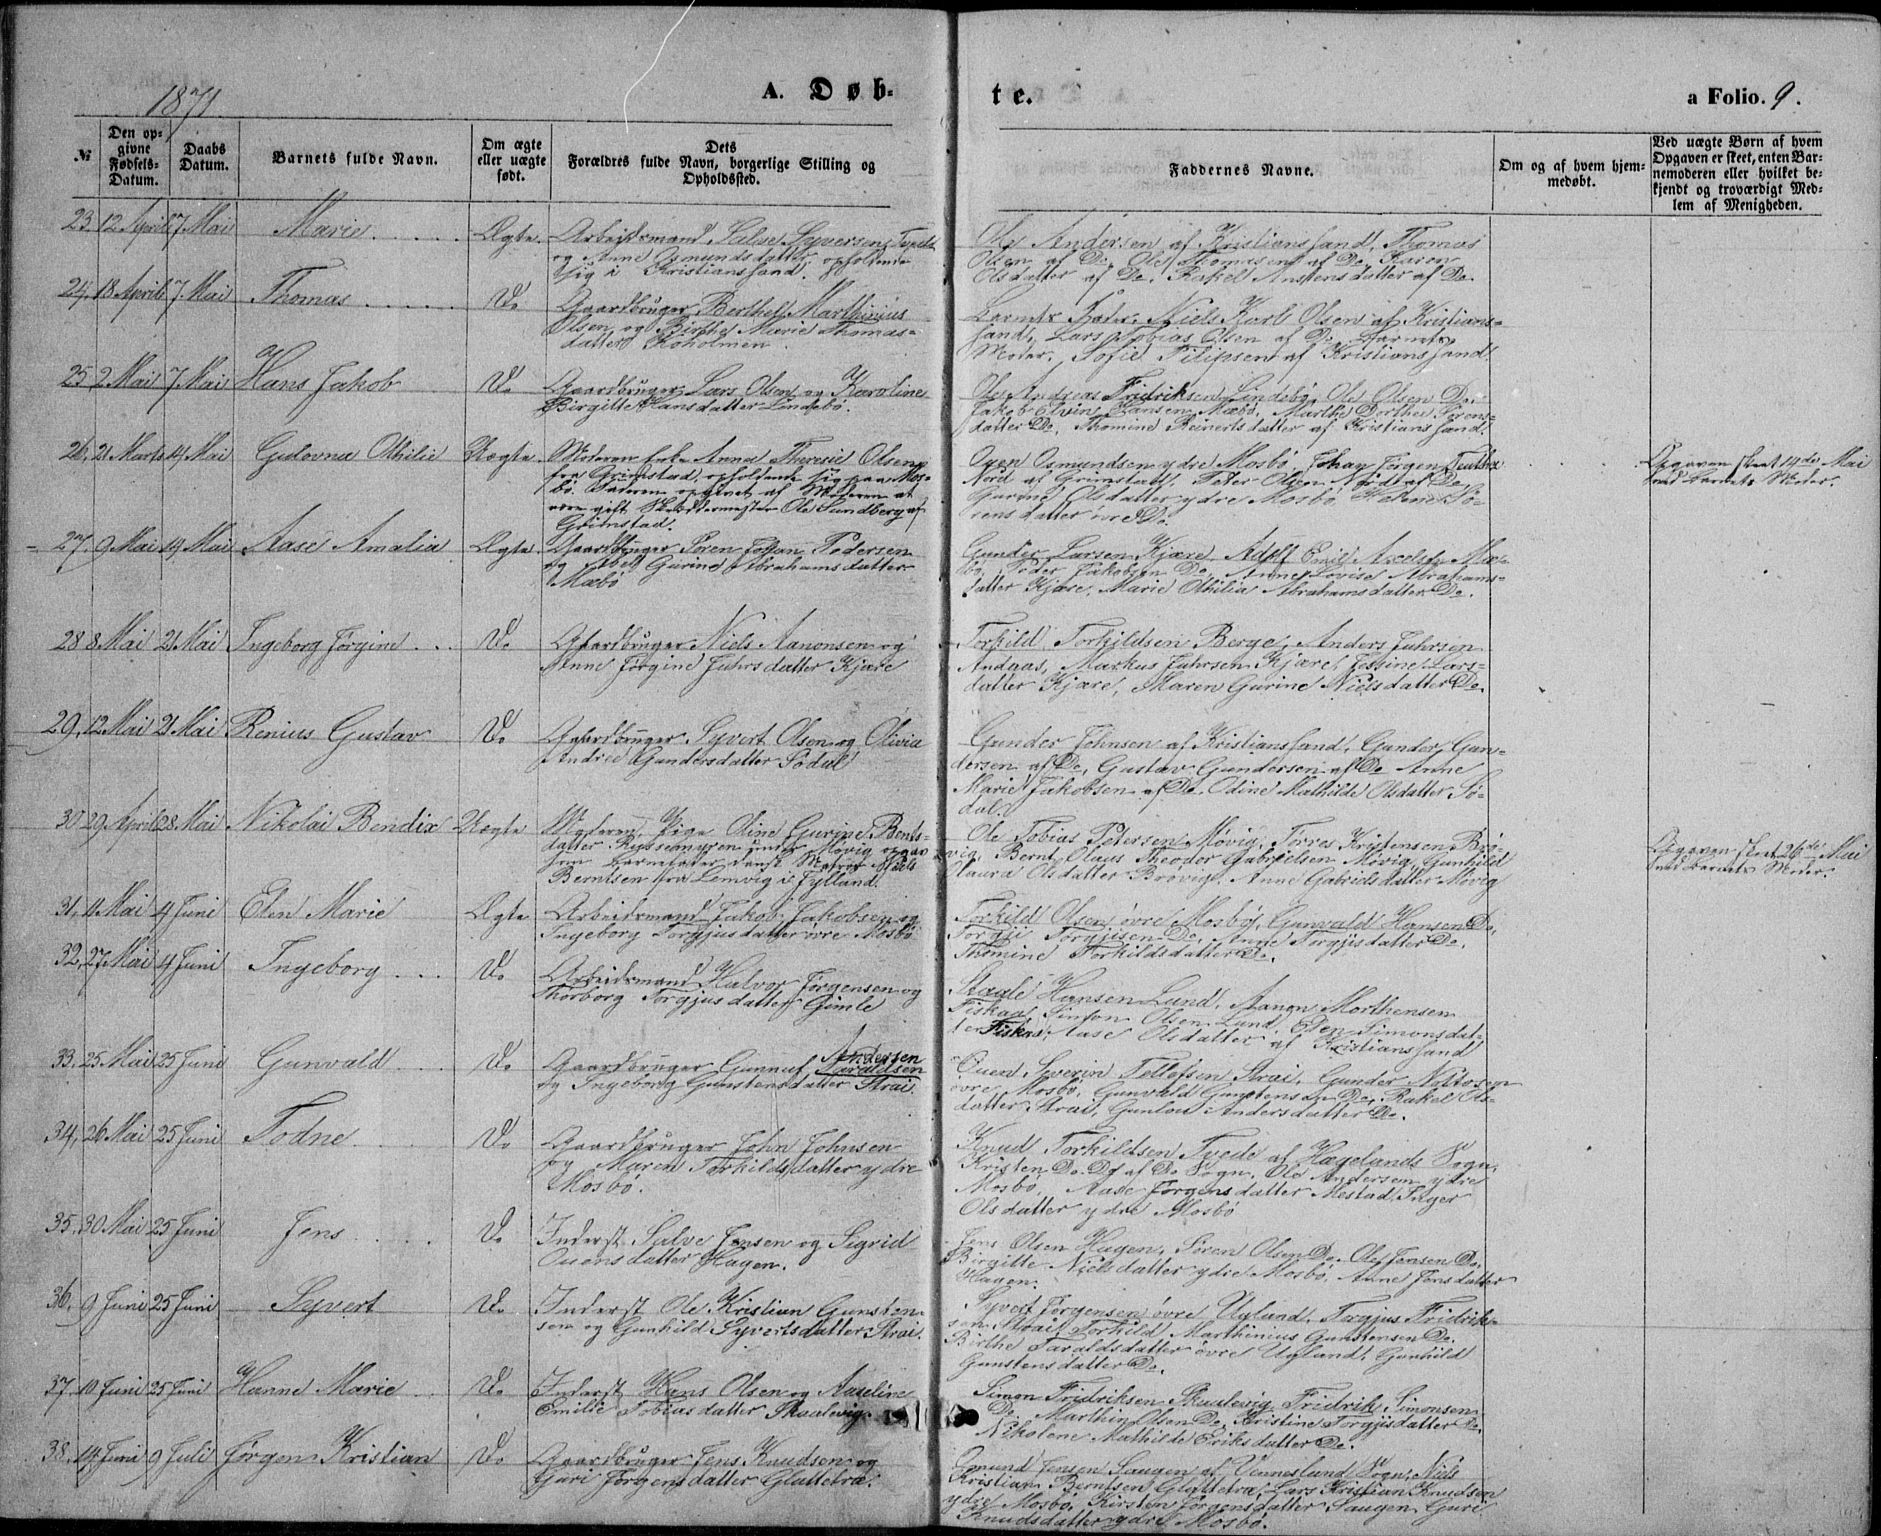 1871.
A. Døb-
te.
a Folio. 9.
№
Den op-
givne
Fødsels-
Datum.
Daabs
Datum.
Barnets fulde Navn.
Om ægte
eller uægte
født.
Dets
Forældres fulde Navn, borgerlige Stilling og
Opholdssted.
Faddernes Navne.
Om og af hvem hjem-
medøbt.
Ved uægte Børn af hvem
Opgaven er skeet, enten Bar-
nemoderen eller hvilket be-
kjendt og troværdigt Med-
lem af Menigheden.
23. 12 April 7 Mai Marie Ægte. Arbeidsmand Salve Syversen Tveit
og Anne Osmundsdatter, opholdende
sig i Kristianssand.
Ole Andersen af Kristianssand, Thomas
Olsen af Do, Ole Thomasen af Do, Karen
Olsdatter af Do. Rakel Anstensdatter af Do
24. 18 April 7 Mai Thomas Do Gaardbruger Berthel Marthinius
Olsen og Birthe Marie Thomas-
datter Koholmen.
Barnets Fader, Niels Karl Olsen af Kristians-
sand, Lars Tobias Olsen af Do Barnets
Moder, Sofie Pilipsen af Kristianssand.
25, 2 Mai 7 Mai Hans Jakob Do Gaardbruger Lars Olsen og Karoline
Birgitte Hansdatter Lindebö.
Ole Andreas Fridriksen Lindebö, Ole Olsen Do.
Jakob Elvin Hansen Mæbö, Marthe Dorthea Sörens-
datter Do, Thomine Reinertsdatter af Kristianssand.
26, 21 Marts 14 Mai Gulovna Othilie Uægte Moderen Anna Theresie Olsen
fra Grimstad, opholdende sig paa Mos-
bö. Faderen opgivet af Moderen at
være gift Ole Sundberg af
Grimstad.
Osmundsen ydre Mosbö, Johan Jörgen
Nord af Grimstad, Peter Olsen Nord af Do
Gurine Olsdatter ydre Mosbö, Helene Sö-
rensdatter övre Do.
Opgaven skeet 14de Mai
med Barnets Moder.
27. 9 Mai 14 Mai Aase Amalia Ægte Gaardbruger Sören Johan Pedersen
og Abel Gurine Abrahamsdatter
Mæbö
Gunder Larsen Kjære, Adolf Emil Axelsen Mæ-
bö, Peder Jakobsen Do, Anne Lovise Abrahams-
datter Kjære, Marie Othilia Abrahamsdatter Do.
28 8 Mai 21 Mai Ingeborg Jörgine Do Gaardbruger Niels Aanonsen og
Anne Jörgine Fuhrsdatter Kjære
Torkild Torkildsen Berge, Anders Fuhrsen
Andaas, Markus Fuhrsen Kjære, Lars-
datter Kjære, Maren Gurine Nielsdatter Do.
29, 12 Mai 21 Mai Renius Gustav Do Gaardbruger Syvert Olsen og Olivia
Andrea Gundersdatter Södal
Gunder Johnsen af Kristianssand, Gunder Gun-
dersen af Do, Gustav Gundersen af Do Anne
Marie Jakobsen af Do. Odine Mathilde Olsdatter Sö-
dal.
30 29 April 28 Mai Nikolai Bendix Uægte Moderen Pige Oline Gurine Bents-
datter under Møvig opgav
som Barnefader dansk Matros Niels
Berntsen fra Lemvig i Jylland.
Ole Tobias Petersen Møvig, Törres Kristensen Brö-
vig, Bernt Olaus Theodor Gabrielsen Møvig, Gunhild
Laura Olsdatter Brövig. Anne Gabrielsdatter Møvig
Opgaven skeet 26de Mai
med Barnets Moder.
31, 11 Mai 4 Juni Elen Marie Ægte Arbeidsmand Jakob Jakobsen og
Ingeborg Torgjusdatter övre Mosbö
Torkild Olsen övre Mosbö, Gunvald Hansen Do,
Torgju Torgjusen Do, Anne Torgjusdatter Do.
Thomine Torkildsdatter Do.
32, 27 Mai 4 Juni Ingeborg Do Arbeidsmand Halvor Jörgensen og
Thorborg Torgjusdatter Gimle
Hansen Lund, Aanon Morthensen
Fiskaa, Simon Olsen Lund, Elen Simonsdat-
ter Fiskaa, Aase Olsdatter af Kristianssand
33, 25 Mai 25 Juni Gunvald Do Gaardbruger Gunnuf Taraldsen Andersen
og Ingeborg Gunstensdatter Strai.
Ouen Severin Tellefsen Strai, Gunder
övre Mosbö, Gunvald Gunstensen Do, Rakel Ols-
datter Strai, Gunlou Andersdatter Do.
34, 26 Mai 25 Juni Todne Do Gaardbruger John Johnsen
og Maren Torkildsdatter ydre
Mosbö.
Knud Torkildsen Tvede af Hægelands Sogn,
Kristen Do. Do af Do Sogn. Ole Andersen ydre
Mosbö, Aase Jörgensdatter Mestad, Inger
Olsdatter ydre Mosbö
35, 30 Mai 25 Juni Jens Do Inderst Salve Jensen og Sigrid
Ouensdatter Hagen.
Jens Olsen Hagen, Sören Olsen Do. Ole Jensen Do.
Birgitte Nielsdatter ydre Mosbö, Anne Jensdatter
Hagen.
36, 9 Juni 25 Juni Syvert Do Inderst Ole Kristian Gunsten-
sen og Gunhild Syvertsdatter Strai.
Syvert Jörgensen övre Ugland, Torgjus Fridrik-
sen Strai, Torkild Marthinius Gunstensen Do.
Birthe Taraldsdatter övre Ugland, Gunhild
Gunstensdatter Do.
37. 10 Juni 25 Juni Hanne Marie Do Inderst Hans Olsen og Aaseline
Emilie Tobiasdatter Skaalevig
Simon Fridriksen Skaalevig, Fridrik Simonsen
Do. Marthin Olsen Do, Kristine Torgjusdatter Do.
Nikolene Mathilde Eriksdatter Do.
38. 14 Juni 9 Juli Jörgen Kristian Do Gaardbruger Jens Knudsen og
Guri Jörgensdatter Glattetræ.
Omund Jensen Saugen af Vennesland Sogn, Niels
Kristian Berntsen Glattetræ, Lars Kristian Knudsen
ydre Mosbö, Kirsten Jörgensdatter Saugen, Guri
Knudsdatter ydre Mosbö.